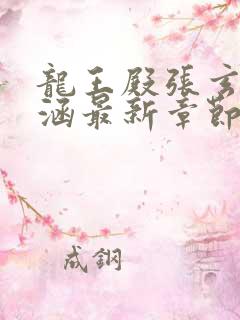 龍王殿張玄
涵最新章節
成鋼